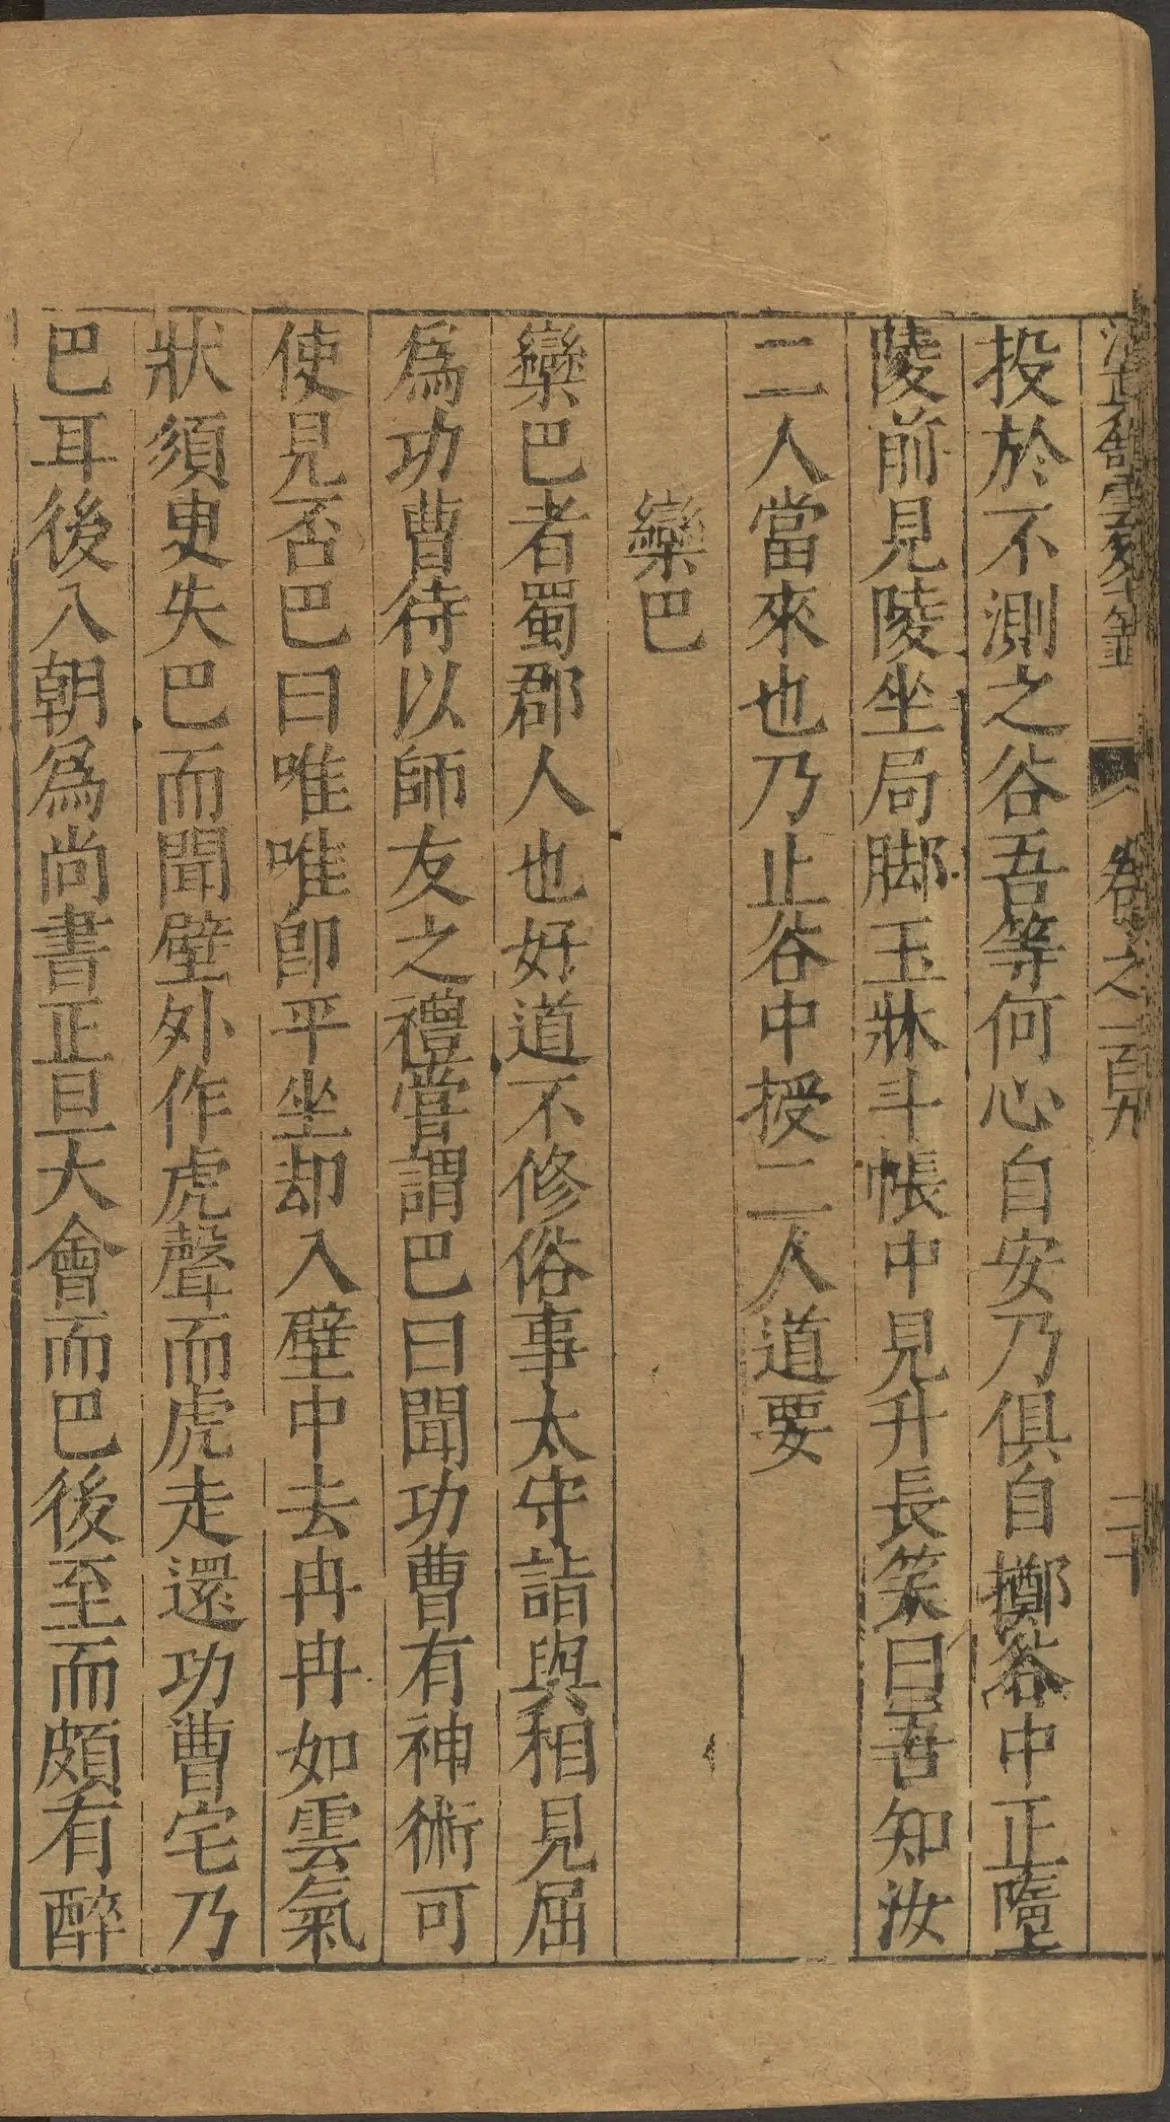 卷之一百九
二十
投於不測之谷吾等何心自安乃俱自擲谷中正墮
陵前見陵坐局脚玉牀斗帳中見升長笑曰吾知汝
二人當來也乃止谷中授二人道要
欒巴
欒巴者蜀郡人也好道不修俗事太守詣與相見屈
爲功曹待以師友之禮嘗謂巴曰聞功曹有神術可
使見否巴曰唯唯卽平坐却入壁中去冉冉如雲氣
狀須臾失巴而聞壁外作虎聲而虎走還功曹宅乃
巴耳後入朝爲尚書正旦大會而巴後至而頗有醉